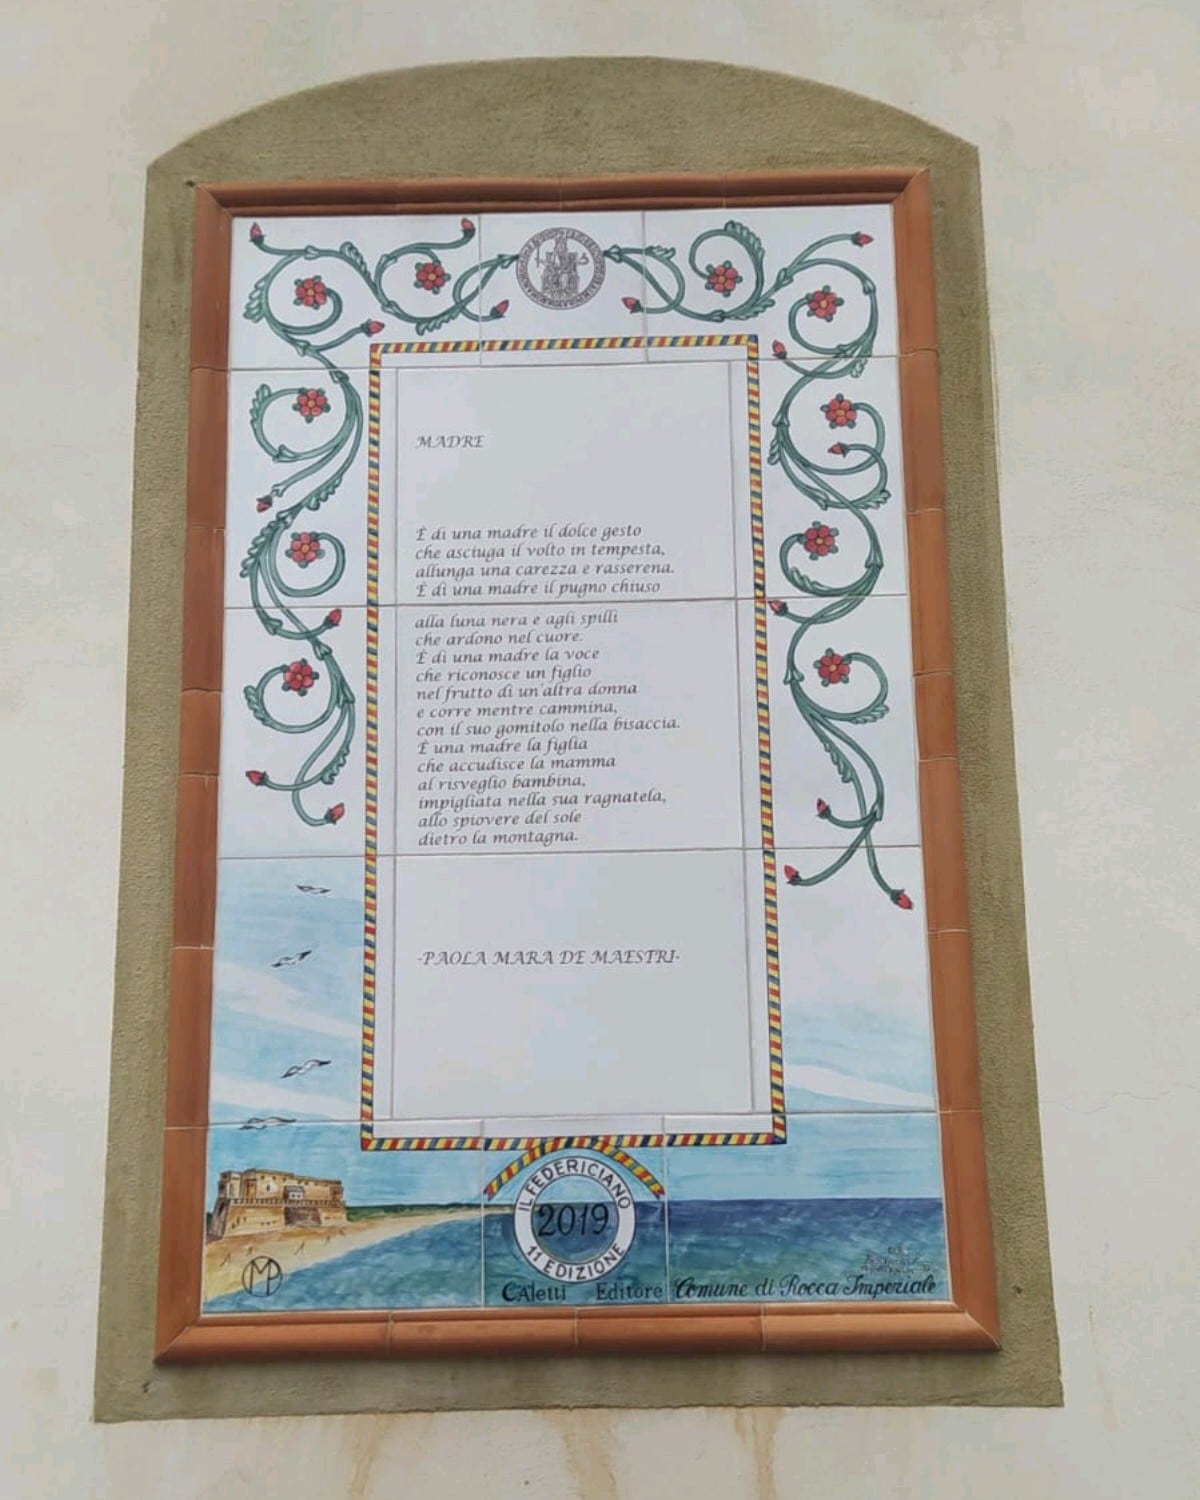 MADRE
È di una madre il dolce gesto
che asciuga il volto in tempesta,
allunga una carezza e rasserena.
È di una madre il pugno chiuso
alla luna nera e agli spilli
che ardono nel cuore.
È di una madre la voce
che riconosce un figlio
nel frutto di un'altra donna
e corre mentre cammina,
con il suo gomitolo nella bisaccia.
È una madre la figlia
che accudisce la mamma
al risveglio bambina,
impigliata nella sua ragnatela,
allo spiovere del sole
dietro la montagna.
-PAOLA MARA DE MAESTRI-
IL FEDERICIANO
2019
11 EDIZIONE
Aletti Editore
Comune di Rocca Imperiale